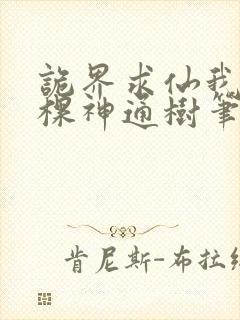 詭界求仙我
棵神通樹筆
肯尼斯-布拉